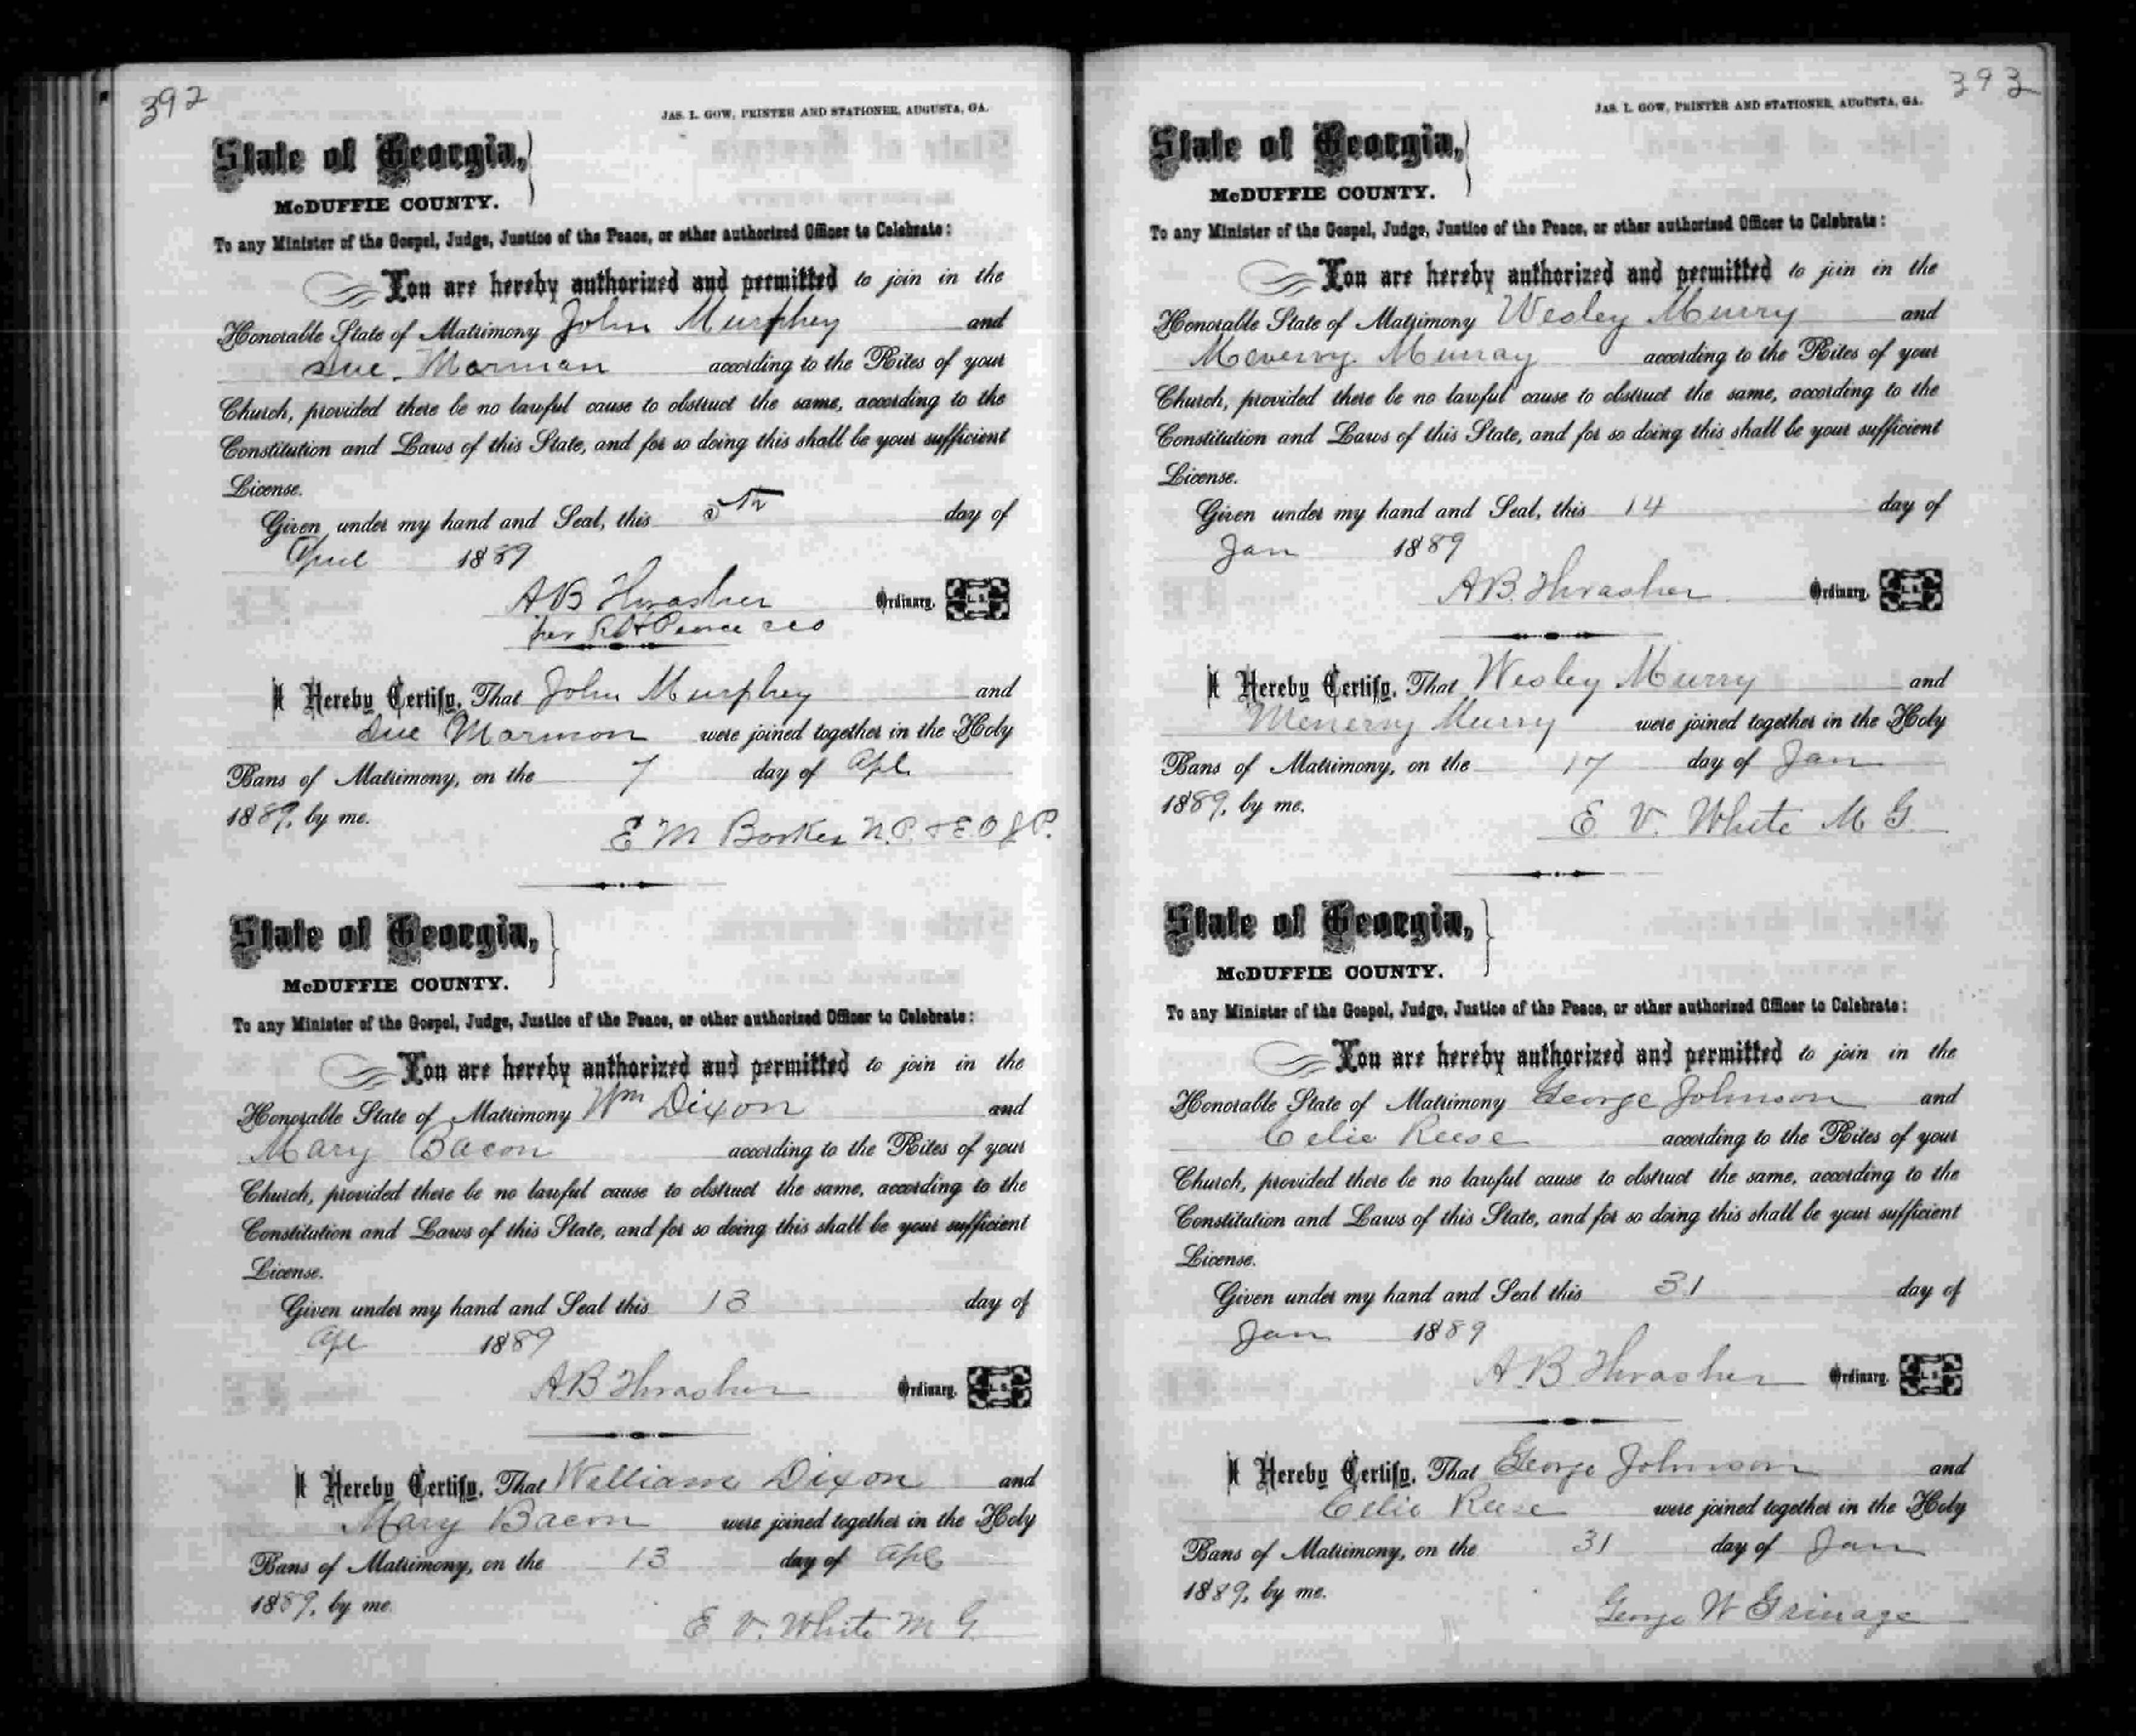 392
JAS. L. GOW, PRINTER AND STATIONER, AUGUSTA, GA.
State of Georgia,
McDUFFIE COUNTY.
To any Minister of the Gospel, Judge, Justice of the Peace, or other authorized Officer to Celebrate:
You are hereby authorized and permitted to join in the
Honorable State of Matrimony John Murphey and
Sue Marman according to the Rites of your
Church, provided there be no lawful cause to obstruct the same, according to the
Constitution and Laws of this State, and for so doing this shall be your sufficient
License.
Given under my hand and Seal, this 5th day of
April 1889
A B Thrasher Ordinary, L. S.
per
I Hereby Certify, That John Murphey and
Sue Marmon were joined together in the Holy
Bans of Matrimony, on the 7 day of Apl
1889, by me.
E M Booker N.P. & E.O J P.
State of Georgia,
McDUFFIE COUNTY.
To any Minister of the Gospel, Judge, Justice of the Peace, or other authorized Officer to Celebrate:
You are hereby authorized and permitted to join in the
Honorable State of Matrimony Wm Dixon and
Mary Bacon according to the Rites of your
Church, provided there be no lawful cause to obstruct the same, according to the
Constitution and Laws of this State, and for so doing this shall be your sufficient
License.
Given under my hand and Seal this 13 day of
Apl 1889
A B Thrasher Ordinary, L. S.
I Hereby Certify, That William Dixon and
Mary Bacon were joined together in the Holy
Bans of Matrimony, on the 13 day of Apl
1889, by me.
E. V. White M G.
393
JAS. L. GOW, PRINTER AND STATIONER, AUGUSTA, GA.
State of Georgia,
McDUFFIE COUNTY.
To any Minister of the Gospel, Judge, Justice of the Peace, or other authorized Officer to Celebrate:
You are hereby authorized and permitted to join in the
Honorable State of Matrimony Wesley Murry and
Murray according to the Rites of your
Church, provided there be no lawful cause to obstruct the same, according to the
Constitution and Laws of this State, and for so doing this shall be your sufficient
License.
Given under my hand and Seal, this 14 day of
Jan 1889
A B. Thrasher Ordinary, L. S.
I Hereby Certify, That Wesley Murry and
Menervy Murry were joined together in the Holy
Bans of Matrimony, on the 17 day of Jan
1889, by me.
E. V. White M G.
State of Georgia,
McDUFFIE COUNTY.
To any Minister of the Gospel, Judge, Justice of the Peace, or other authorized Officer to Celebrate:
You are hereby authorized and permitted to join in the
Honorable State of Matrimony George Johnson and
Celie Reese according to the Rites of your
Church, provided there be no lawful cause to obstruct the same, according to the
Constitution and Laws of this State, and for so doing this shall be your sufficient
License.
Given under my hand and Seal this 31 day of
Jan 1889
A B Thrasher Ordinary, L. S.
I Hereby Certify, That George Johnson and
Celie Reese were joined together in the Holy
Bans of Matrimony, on the 31 day of Jan
1889, by me.
George W Grinage